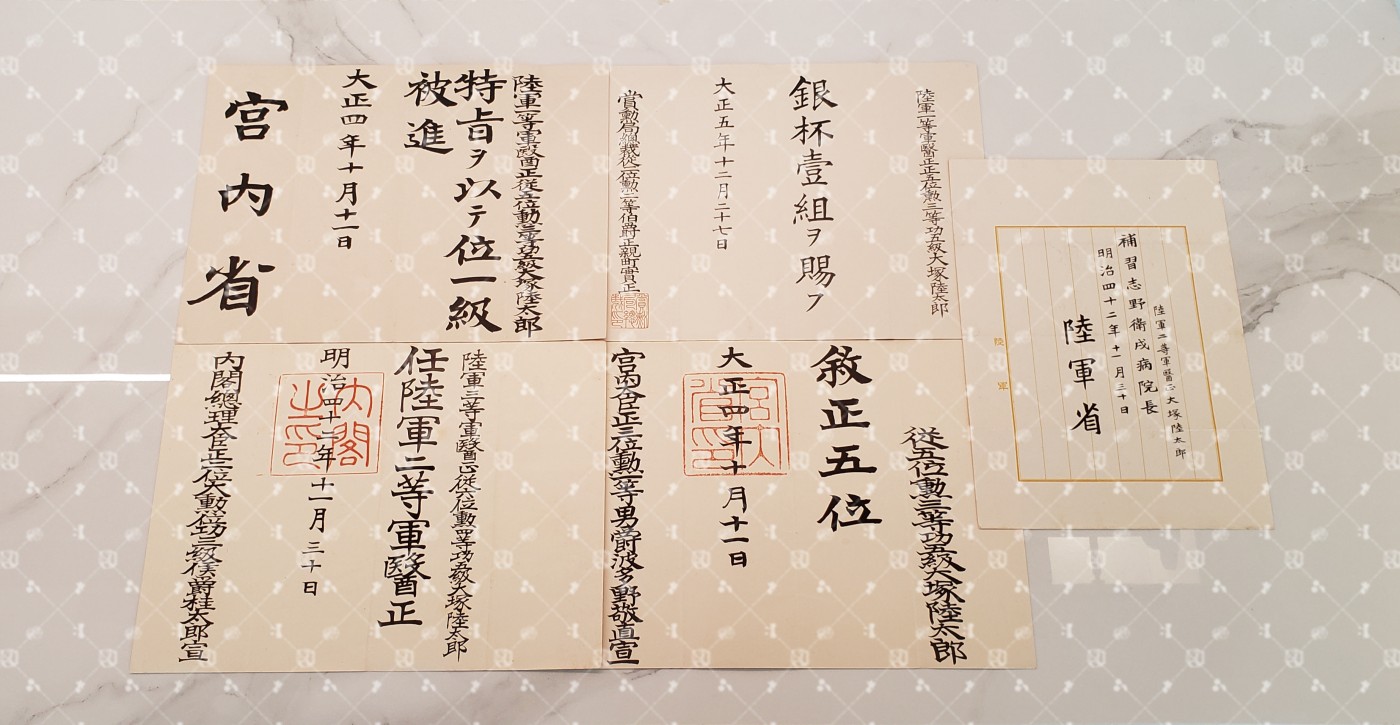 陸軍一等軍醫正從五位勳三等功五級大塚陸太郎
特旨ヲ以テ位一級
被進
大正四年十月十一日
宮内省
陸軍一等軍醫正正五位勳三等功五級大塚陸太郎
銀杯壹組ヲ賜フ
大正五年十二月二十七日
賞勳局總裁從二位勳一等伯爵正親町實正
陸軍二等軍醫正大塚陸太郎
補習志野衛戍病院長
明治四十二年十一月三十日
陸軍省
陸軍
陸軍三等軍醫正從六位勳四等功五級大塚陸太郎
任陸軍二等軍醫正
明治四十二年十一月三十日
内閣總理大臣正二位大勳位功三級侯爵桂太郎宣
内閣之印
從五位勳三等功五級大塚陸太郎
敘正五位
大正四年十月十一日
宮内大臣正三位勳一等男爵波多野敬直宣
宮内省印